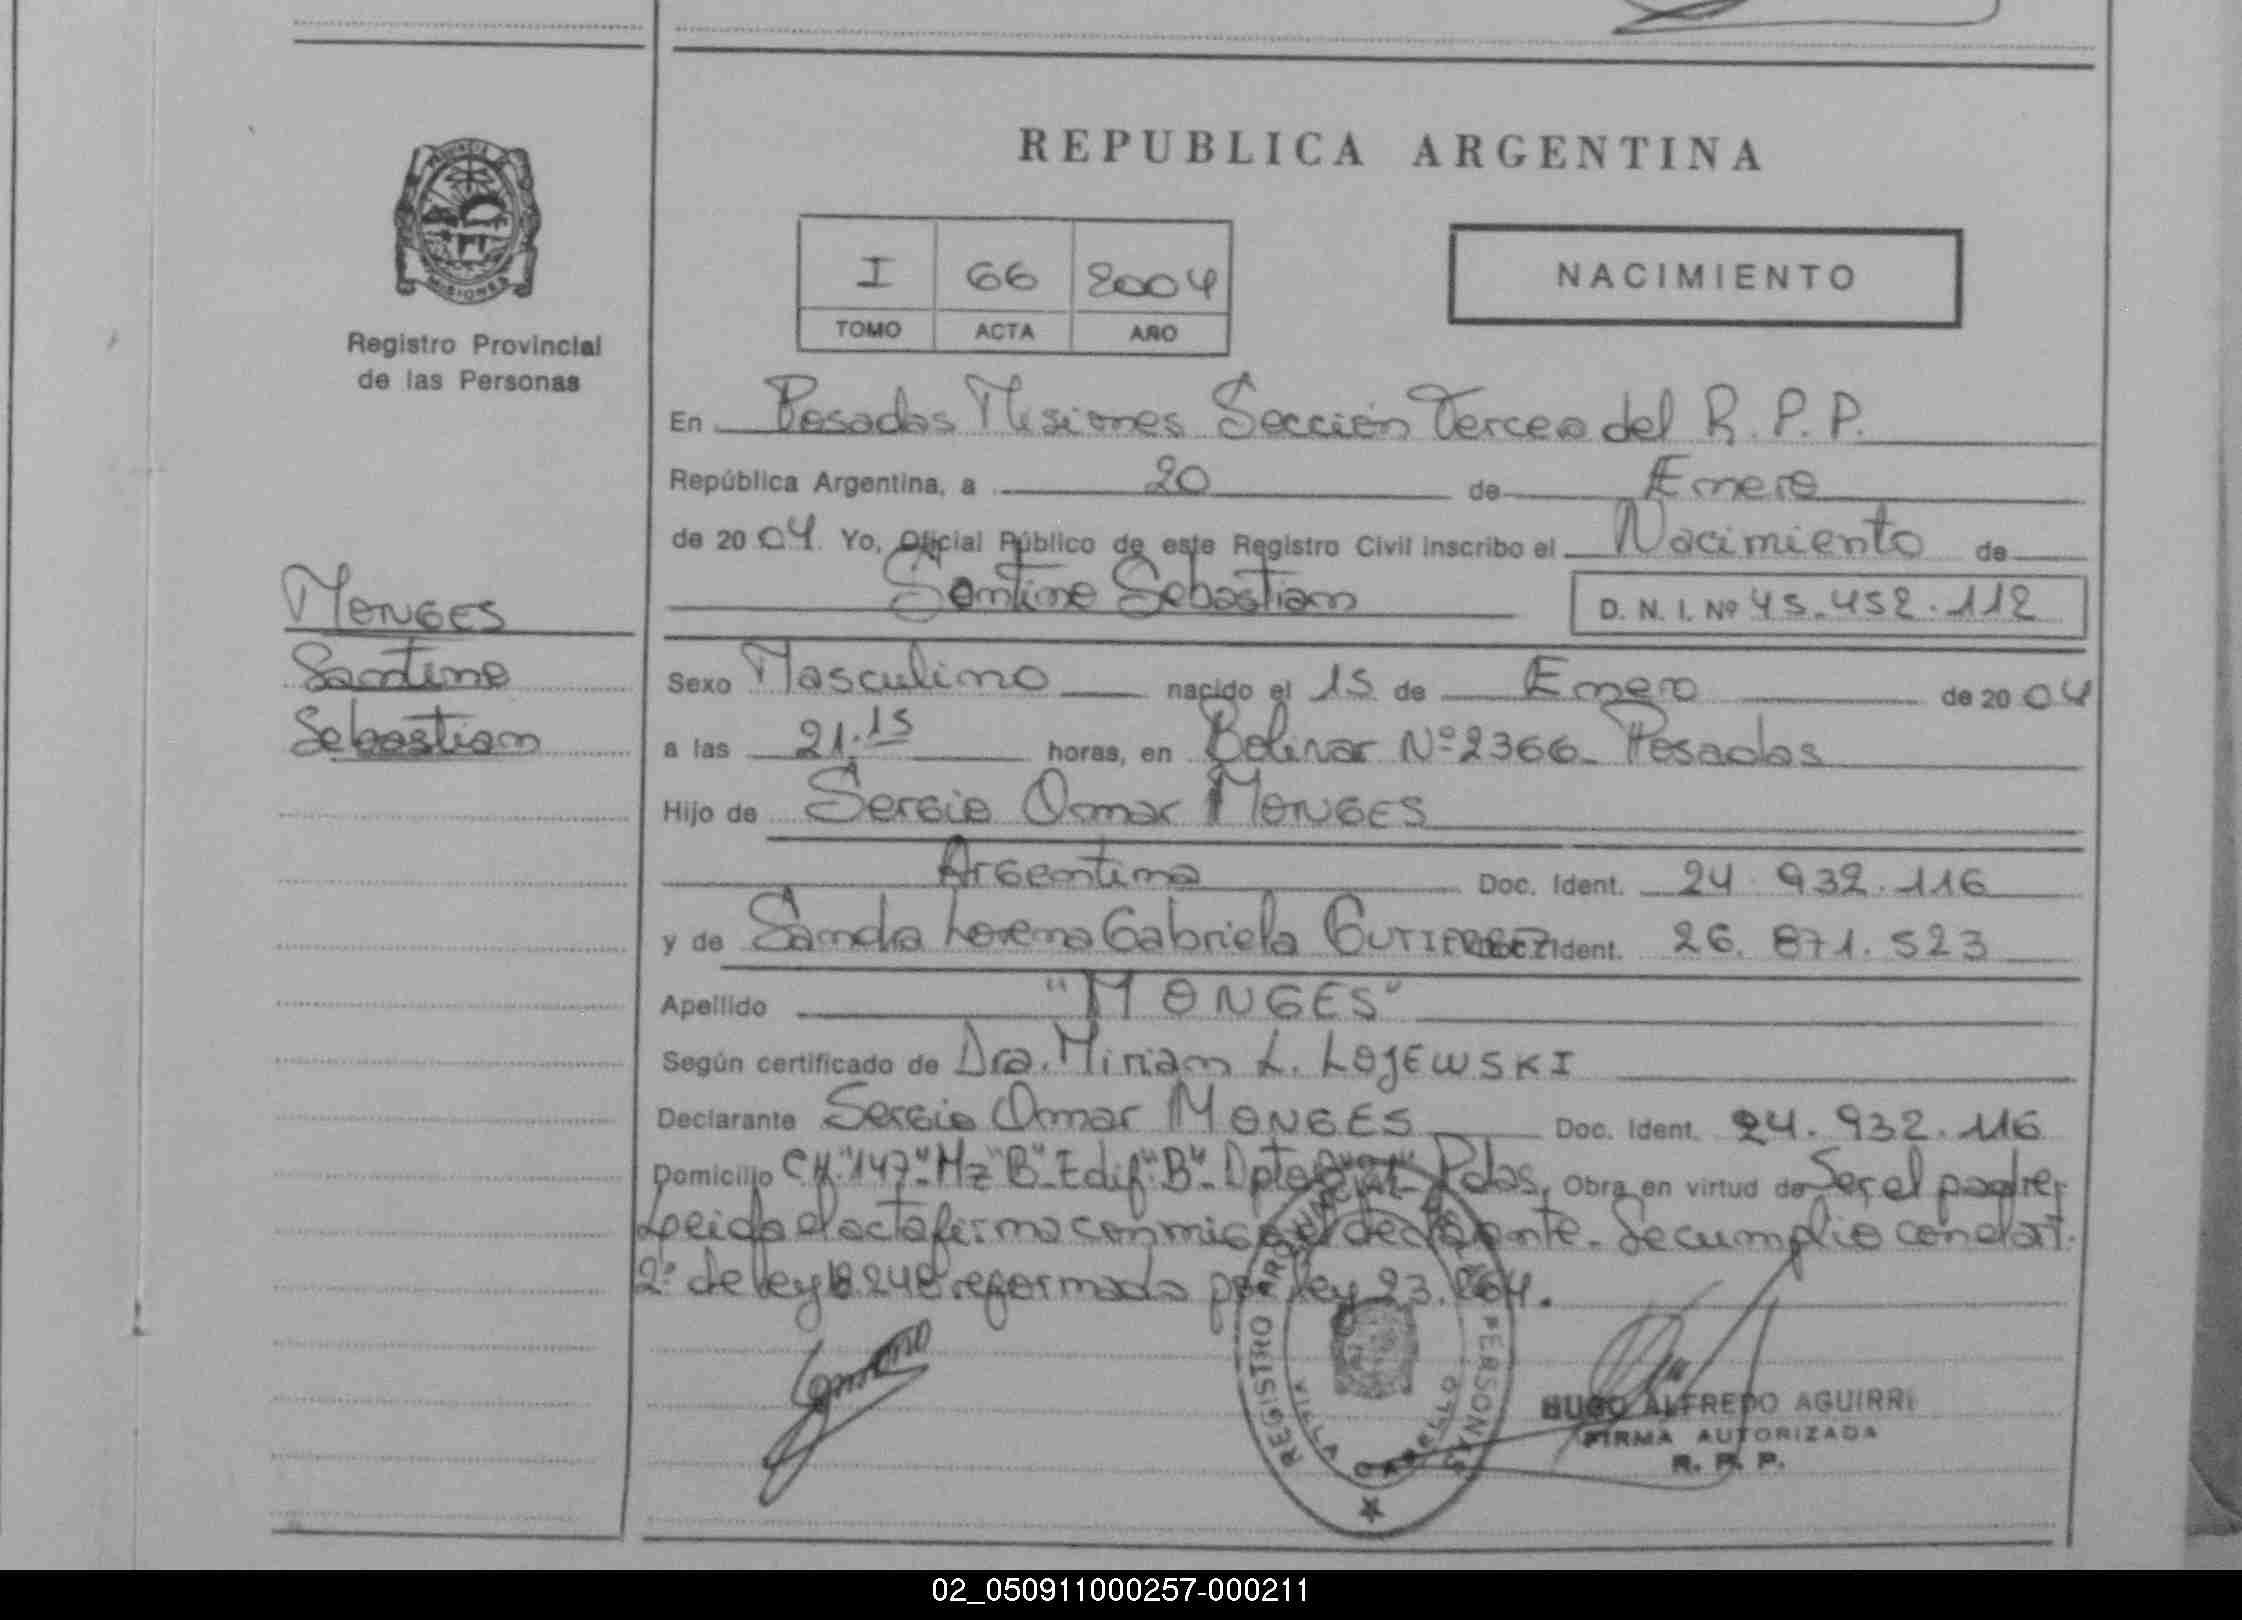 REPUBLICA ARGENTINA
PROVINCIA DE
MISIONES
Registro Provincial
de las Personas
I 66 2004
TOMO ACTA AÑO
NACIMIENTO
En Posadas Misiones Sección Tercera del R. P. P.
República Argentina, a 20 de Enero
de 2004. Yo, Oficial Público de este Registro Civil inscribo el Nacimiento de
Santino Sebastian D. N. I. Nº 45.452.112
MONGES
Santino
Sebastian
Sexo Masculino nacido el 15 de Enero de 2004
a las 21.15 horas, en Bolivar Nº 2366 - Posadas
Hijo de Sergio Omar MONGES
Argentina Doc. Ident. 24.932.116
y de Sandra Lorena Gabriela GUTIERREZ Doc. Ident. 26.871.523
Apellido "MONGES"
Según certificado de Dra. Miriam L. LOJEWSKI
Declarante Sergio Omar MONGES Doc. Ident. 24.932.116
Domicilio CH."147"-Mz"B"-Edif."B"-Dpto Pdas, Obra en virtud de Ser el padre,
Leida el acta firma conmigo el declarante. Se cumplio con el art.
2º de ley 18.248 reformada por ley 23.264.
REGISTRO PROVINCIAL DE LAS PERSONAS
VILLA CABELLO
HUGO ALFREDO AGUIRRE
FIRMA AUTORIZADA
R. P. P.
02_050911000257-000211